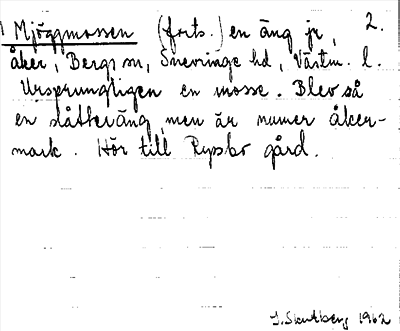 Mjöggmossen (forts.) en äng jr, 2.
åker, Bergs sn, Snevringe hd, Västm. l.
Ursprungligen en mosse. Blev så
en slåtteräng, men är numer åker-
mark. Hör till Rypsbo gård.
1962